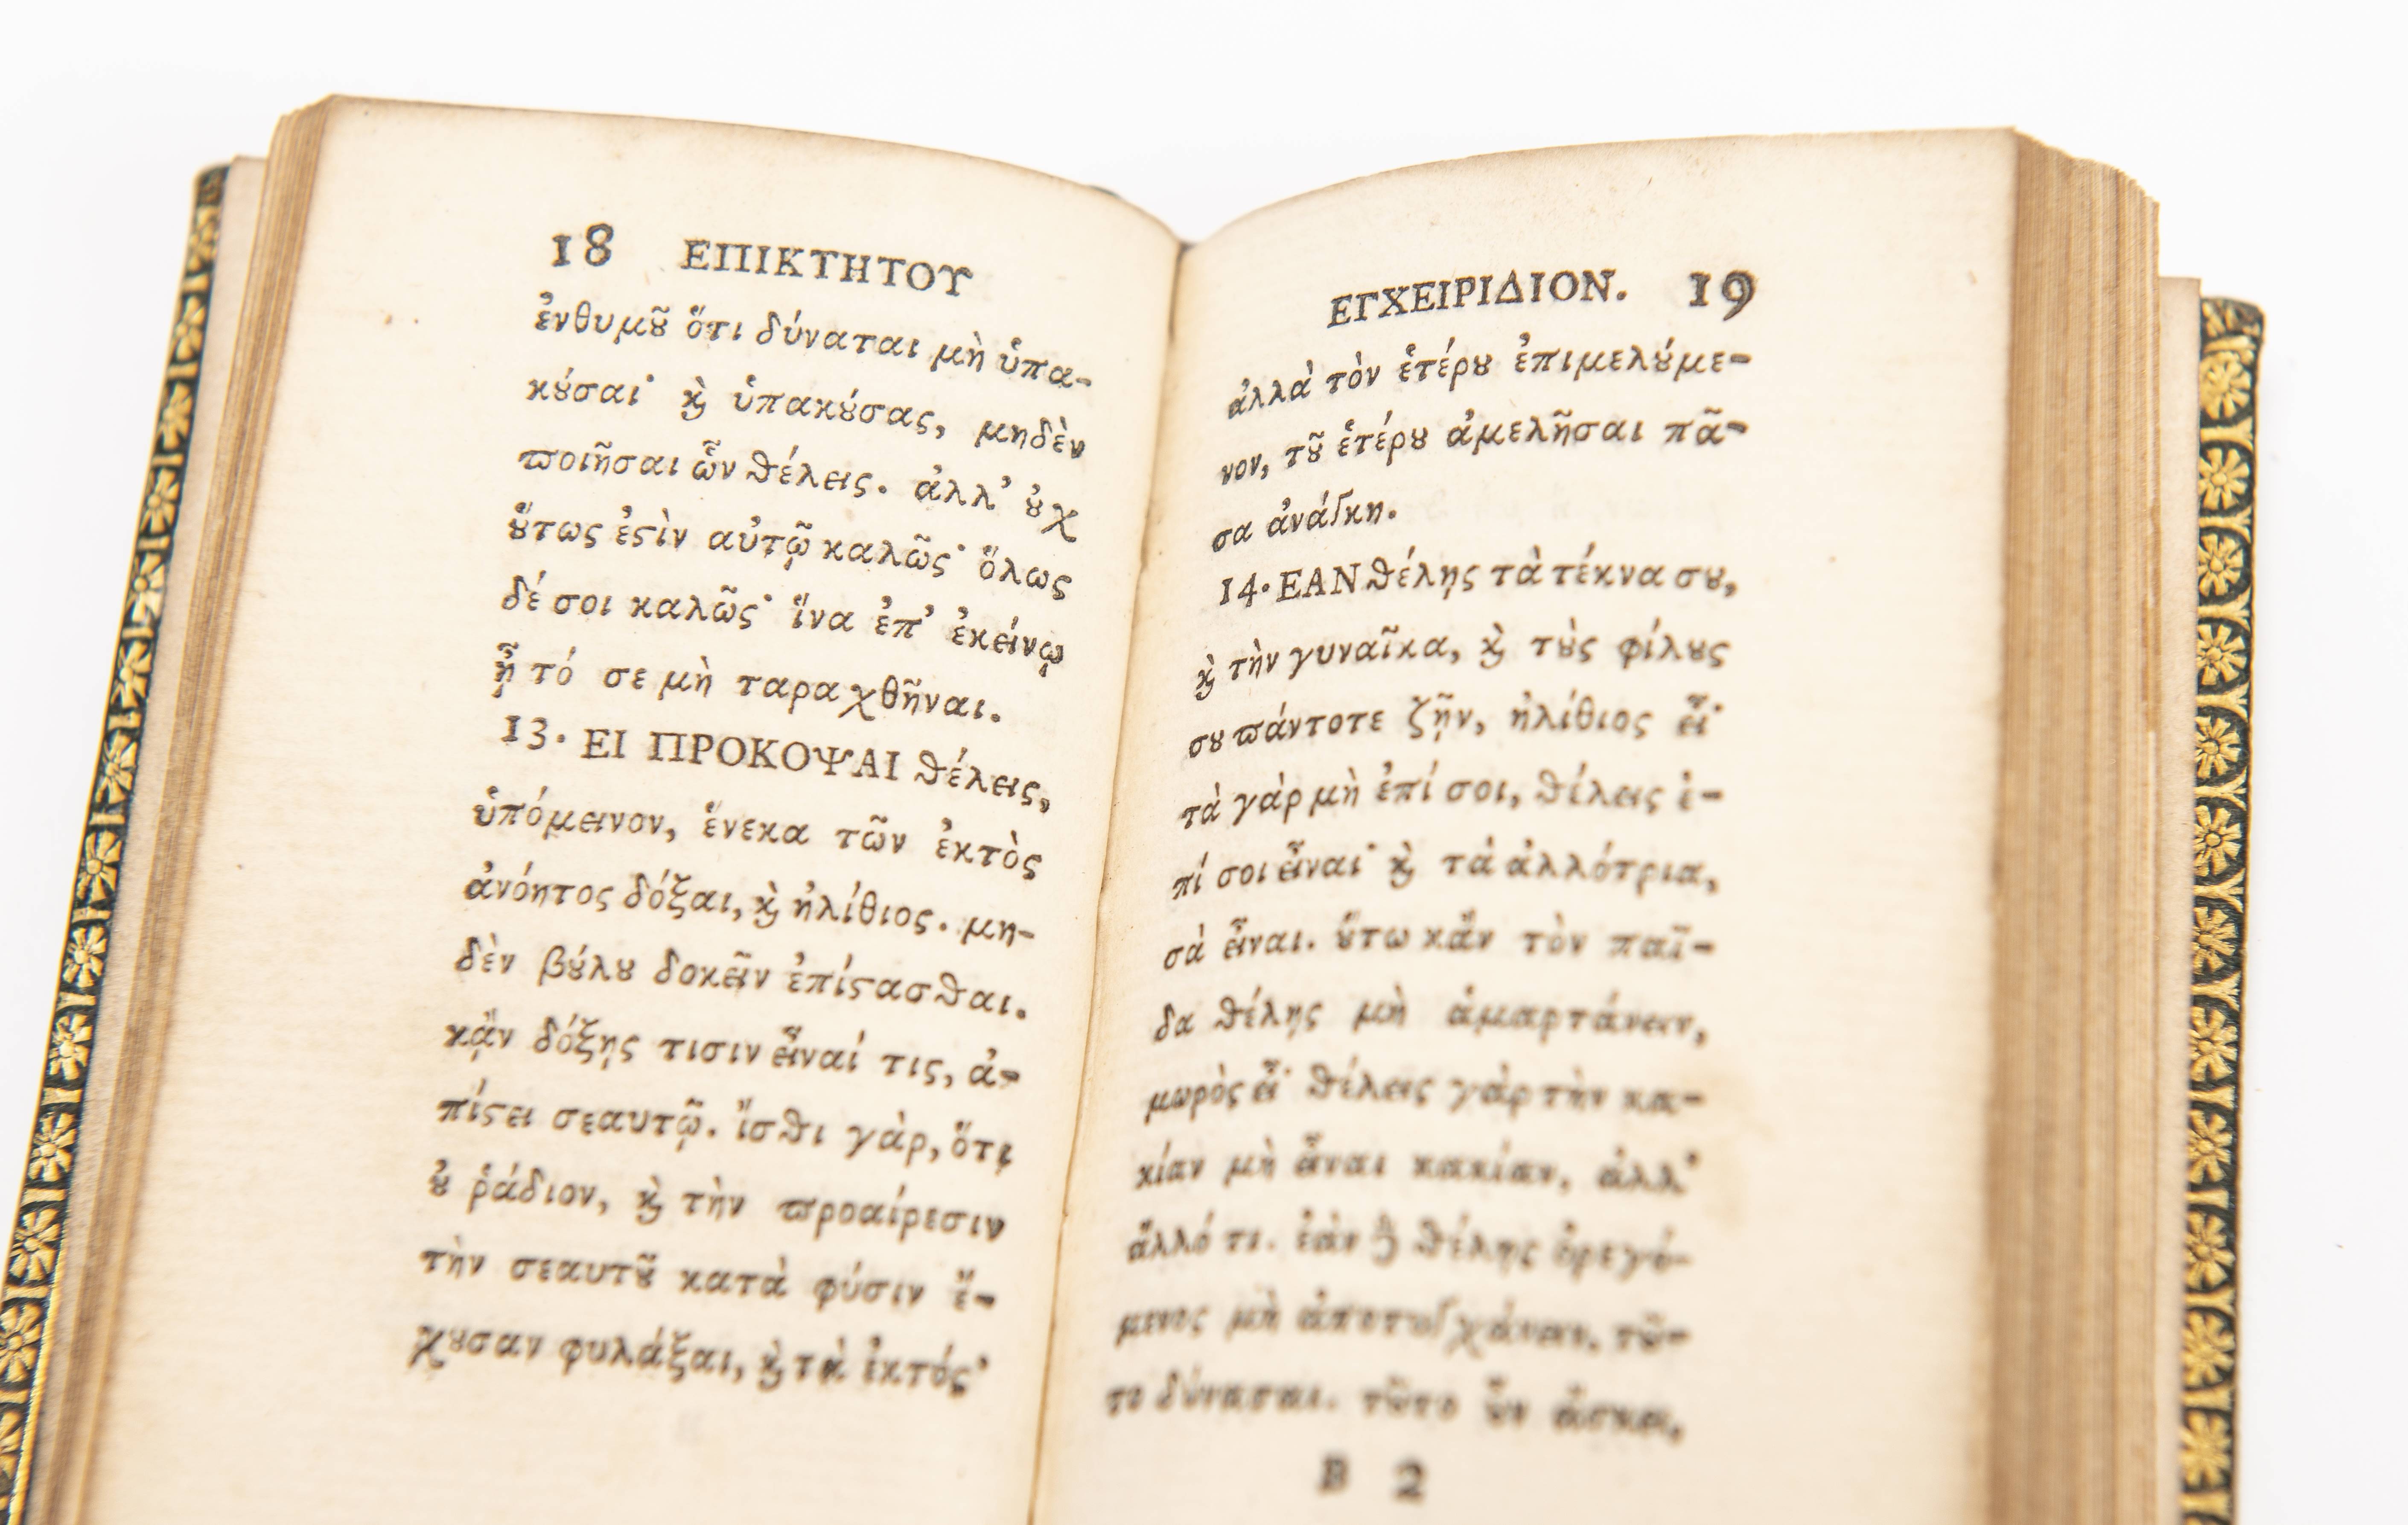 18 ΕΠΙΚΤΗΤΟΥ
ἐνθυμȣ͂ ὅτι δύναται μὴ ὑπα-
κȣ́σαι· ϗ̀ ὑπακȣ́σας, μηδὲν
ϖοιῆσαι ὧν ϑέλεις. ἀλλ’ ȣ̓χ
ȣ̔́τως ἐϛὶν αὐτῷ καλῶς· ὅλως
δέ σοι καλῶς· ἵνα ἐπ’ ἐκείνῳ
ᾖ τό σε μὴ ταραχθῆναι.
13. ΕΙ ΠΡΟΚΟΨΑΙ ϑέλεις,
ὑπόμεινον, ἕνεκα τῶν ἐκτὸς
ἀνόητος δόξαι, ϗ̀ ἠλίθιος. μη-
δὲν βȣ́λȣ δοκεῖν ἐπίϛασϑαι.
κᾂν δόξῃς τισιν εἶναί τις, ἀ-
πίϛει σεαυτῷ. ἴσϑι γὰρ, ὅτι
ȣ̓ ῥάδιον, ϗ̀ τὴν ϖροαίρεσιν
τὴν σεαυτȣ͂ κατὰ φύσιν ἔ-
χȣσαν φυλάξαι, ϗ̀ τὰ ἐκτός·
ΕΓΧΕΙΡΙΔΙΟΝ. 19
ἀλλὰ τὸν ἑτέρȣ ἐπιμελȣ́με-
νον, τȣ͂ ἑτέρȣ ἀμελῆσαι πᾶ-
σα ἀνάγκη.
14. ΕΑΝ ϑέλῃς τὰ τέκνα σȣ,
ϗ̀ τὴν γυναῖκα, ϗ̀ τȣ̀ς φίλȣς
σȣ ϖάντοτε ζῇν, ἠλίθιος εἶ·
τὰ γὰρ μὴ ἐπί σοι, ϑέλεις ἐ-
πί σοι εἶναι· ϗ̀ τὰ ἀλλότρια,
σὰ εἶναι. ȣ̔́τω κἂν τὸν παῖ-
δα ϑέλῃς μὴ ἁμαρτάνειν,
μωρὸς εἶ· ϑέλεις γὰρ τὴν κα-
κίαν μὴ εἶναι κακίαν, ἀλλ’
ἄλλό τι. ἐὰν ϑέλῃς ὀρεγό-
μενος μὴ ἀποτυγχάνειν, τȣ͂-
το δύνασαι. τȣ͂το ȣ̓͂ν ἄσκει,
B 2